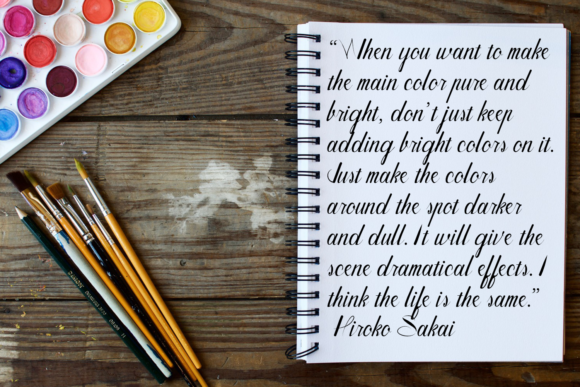 “When you want to make
the main color pure and
bright, don't just keep
adding bright colors on it.
Just make the colors
around the spot darker
and dull. It will give the
scene dramatical effects. I
think the life is the same.”
Hiroko Sakai